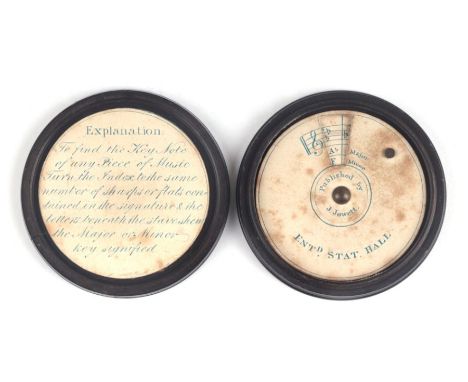 Explanation.
To find the Key Note
of any Piece of Music
Turn the Index to the same
number of sharps or flats con-
tained in the signature & the
letters beneath the stave shew
the Major or Minor
key signified
Ab Major
F Minor
Published by
J. Jowett.
ENTD. STAT. HALL.